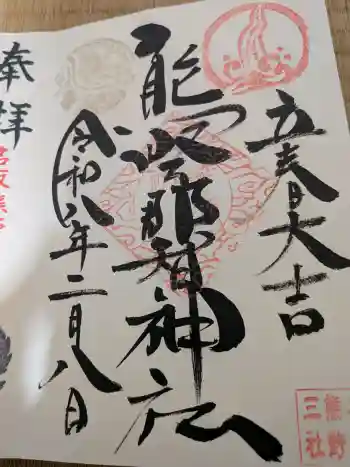 立春大吉
熊野那智神社
令和八年二月八日
奉拝
名取熊
熊野
三社